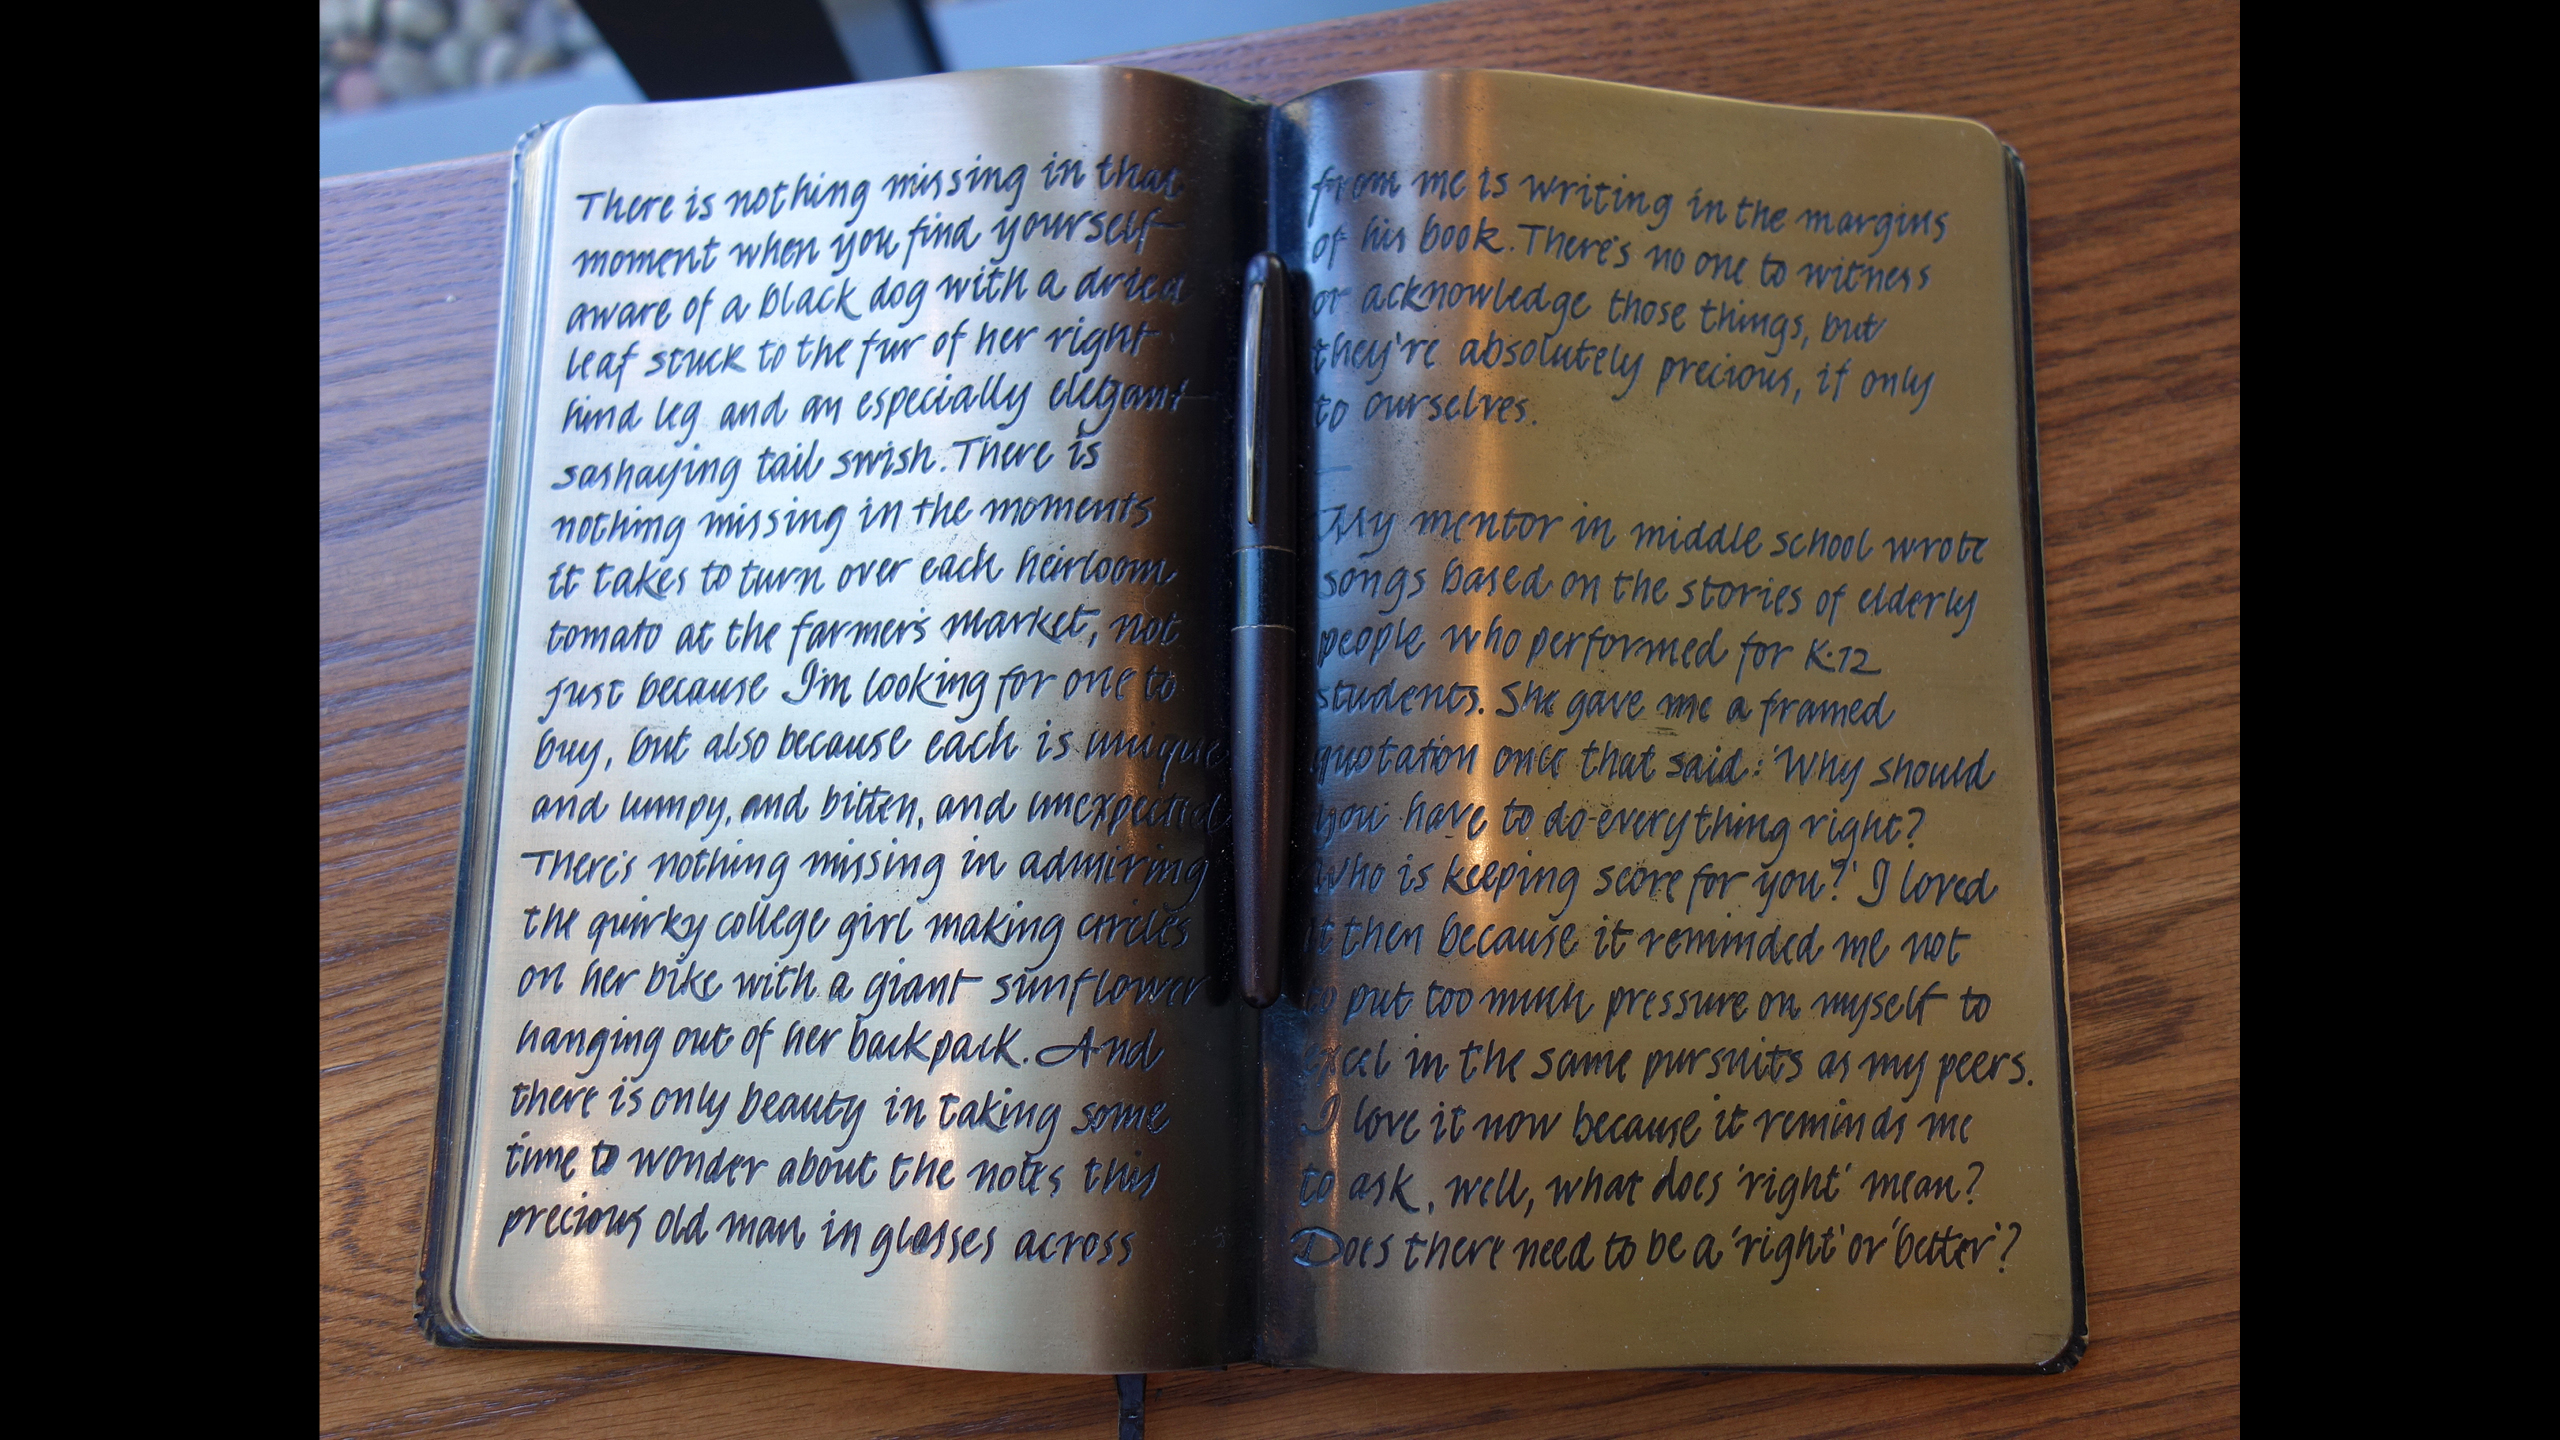 There is nothing missing in that
moment when you find yourself
aware of a black dog with a dried
leaf stuck to the fur of her right
hind leg and an especially elegant
sashaying tail swish. There is
nothing missing in the moments
it takes to turn over each heirloom
tomato at the farmer's market, not
just because I'm looking for one to
buy, but also because each is unique
and lumpy, and bitten, and unexpected.
There's nothing missing in admiring
the quirky college girl making circles
on her bike with a giant sunflower
hanging out of her backpack. And
there is only beauty in taking some
time to wonder about the notes this
precious old man in glasses across
from me is writing in the margins
of his book. There's no one to witness
or acknowledge those things, but
they're absolutely precious, if only
to ourselves.
My mentor in middle school wrote
songs based on the stories of elderly
people who performed for K-12
students. She gave me a framed
quotation once that said: 'Why should
you have to do everything right?
Who is keeping score for you?' I loved
it then because it reminded me not
to put too much pressure on myself to
excel in the same pursuits as my peers.
I love it now because it reminds me
to ask, well, what does 'right' mean?
Does there need to be a 'right' or 'better'?